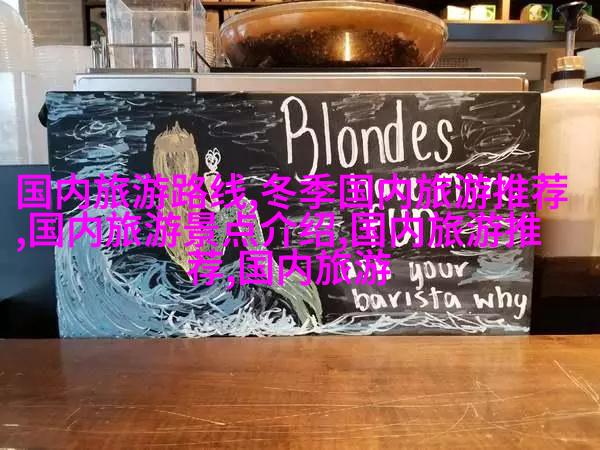 Blondes
国内旅游路线,冬季国内旅游推荐
,国内旅游景点介绍,国内旅游推
荐,国内旅游
your
barista why